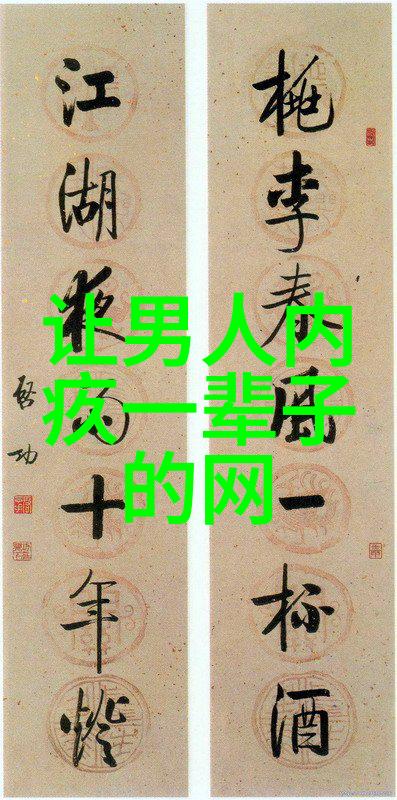 桃李春風一杯酒
江湖夜雨十年燈
啓功
让男人内
疚一辈子
的网